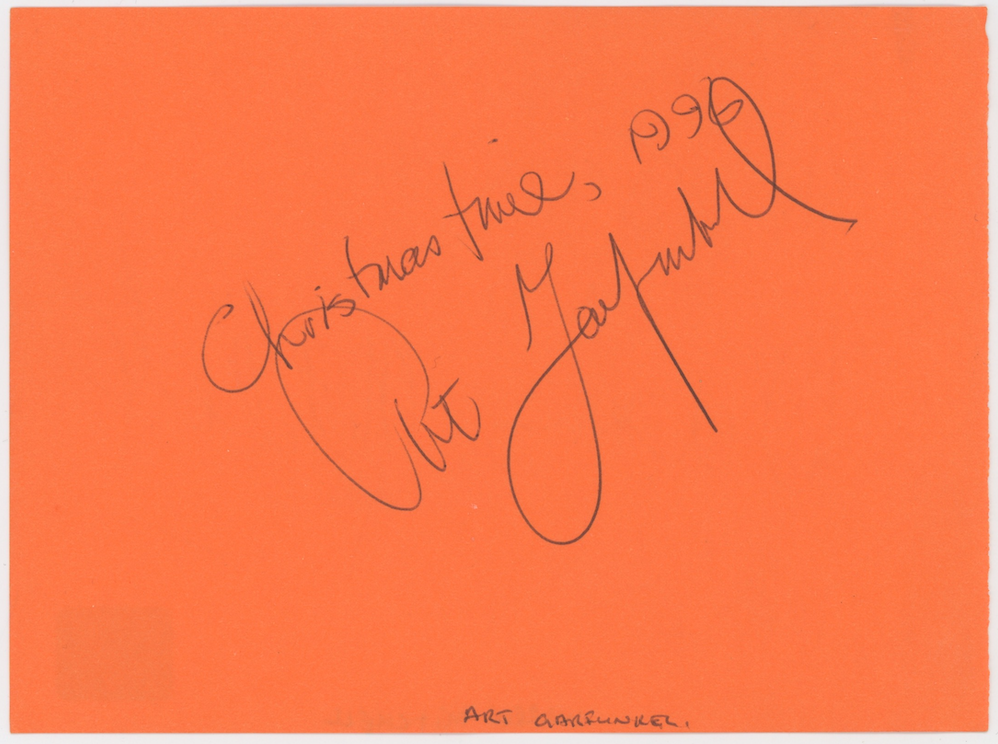 Christmas time, 1996
Art Garfunkel
ART GARFUNKEL.